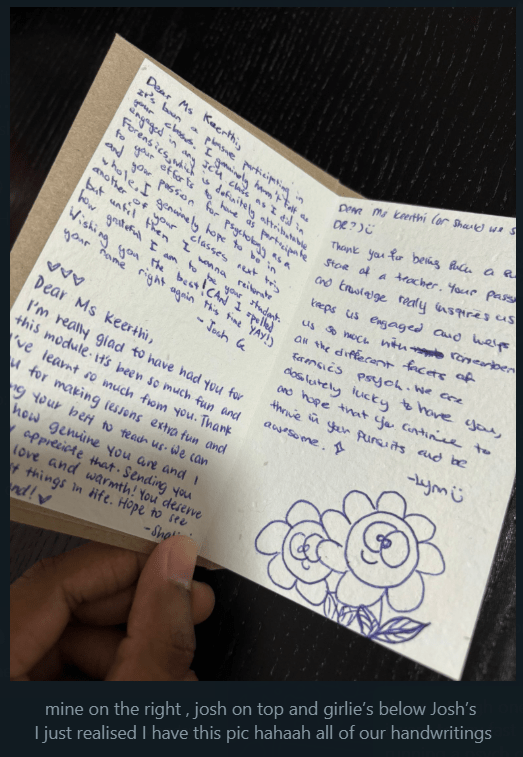 Dear Ms Keerthi,
It's been a pleasure participating in
your classes. I genuinely haven't felt as
engaged in any JCU class as I did in
Forensics, which is definitely attributable
to your efforts to have us participate
and your passion for psychology as a
whole. I genuinely hope to be in
another of your classes next tri
but until then I wanna reiterate
how grateful I am to be your student.
Wishing you the best! (And I spelled
your name right again this time (YAY!)
- Josh G
Dear Ms Keerthi,
I'm really glad to have had you for
this module. It's been so much fun and
I've learnt so much from you. Thank
you for making lessons extra fun and
your best to teach us. We can
how genuine you are and I
appreciate that. Sending you
love and warmth! You deserve
things in life. Hope to see
Dear Ms Keerthi (or should we s
DR?)
Thank you for being such a
star of a teacher. Your pass
and knowledge really inspires us
keeps us engaged and helps
us so much with remember
all the different facets of
forensics psych. We are
absolutely lucky to have you,
and hope that you continue to
thrive in your pursuits and be
awesome.
-Lynn
mine on the right , josh on top and girlie's below Josh's
I just realised I have this pic hahaah all of our handwritings